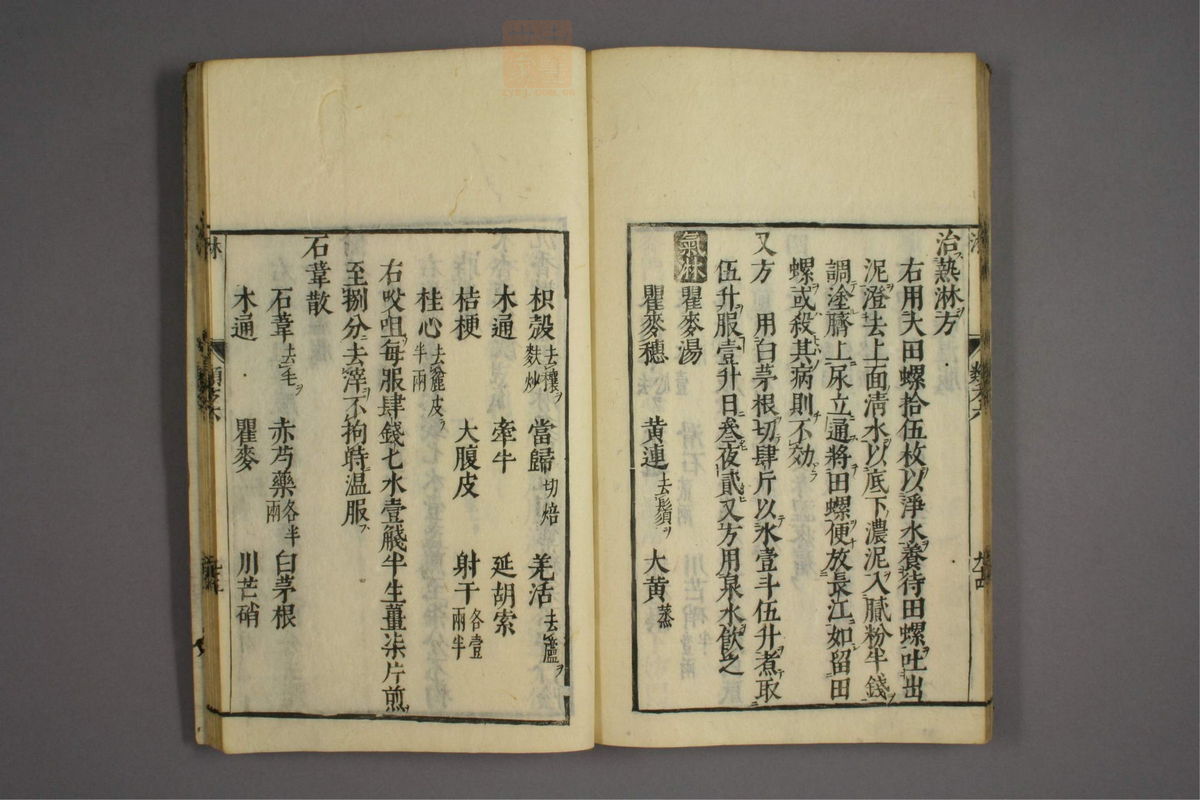 治熱淋方
右用大田螺拾伍枚以淨水養待田螺吐出
泥澄去上面清水以底下濃泥入膩粉半錢
調塗臍上尿立通將田螺便放長江如留田
螺或殺其病則不効
又方 用白茅根切肆斤以水壹斗伍升煮取
伍升服壹升日叁夜貳又方用泉水飲之
氣淋 瞿麥湯
瞿麥穗 黄連去鬚 大黄蒸
枳殼去穰麩炒 當歸切焙 羌活去蘆
木通 牽牛 延胡索
桔梗 大腹皮 射干各壹兩半
桂心去麄皮半兩
右㕮咀每服肆錢匕水壹醆半生薑柒片煎
至捌分去滓不拘時温服
石葦散
石葦去毛 赤芍藥各半兩 白茅根
木通 瞿麥 川芒硝
淋